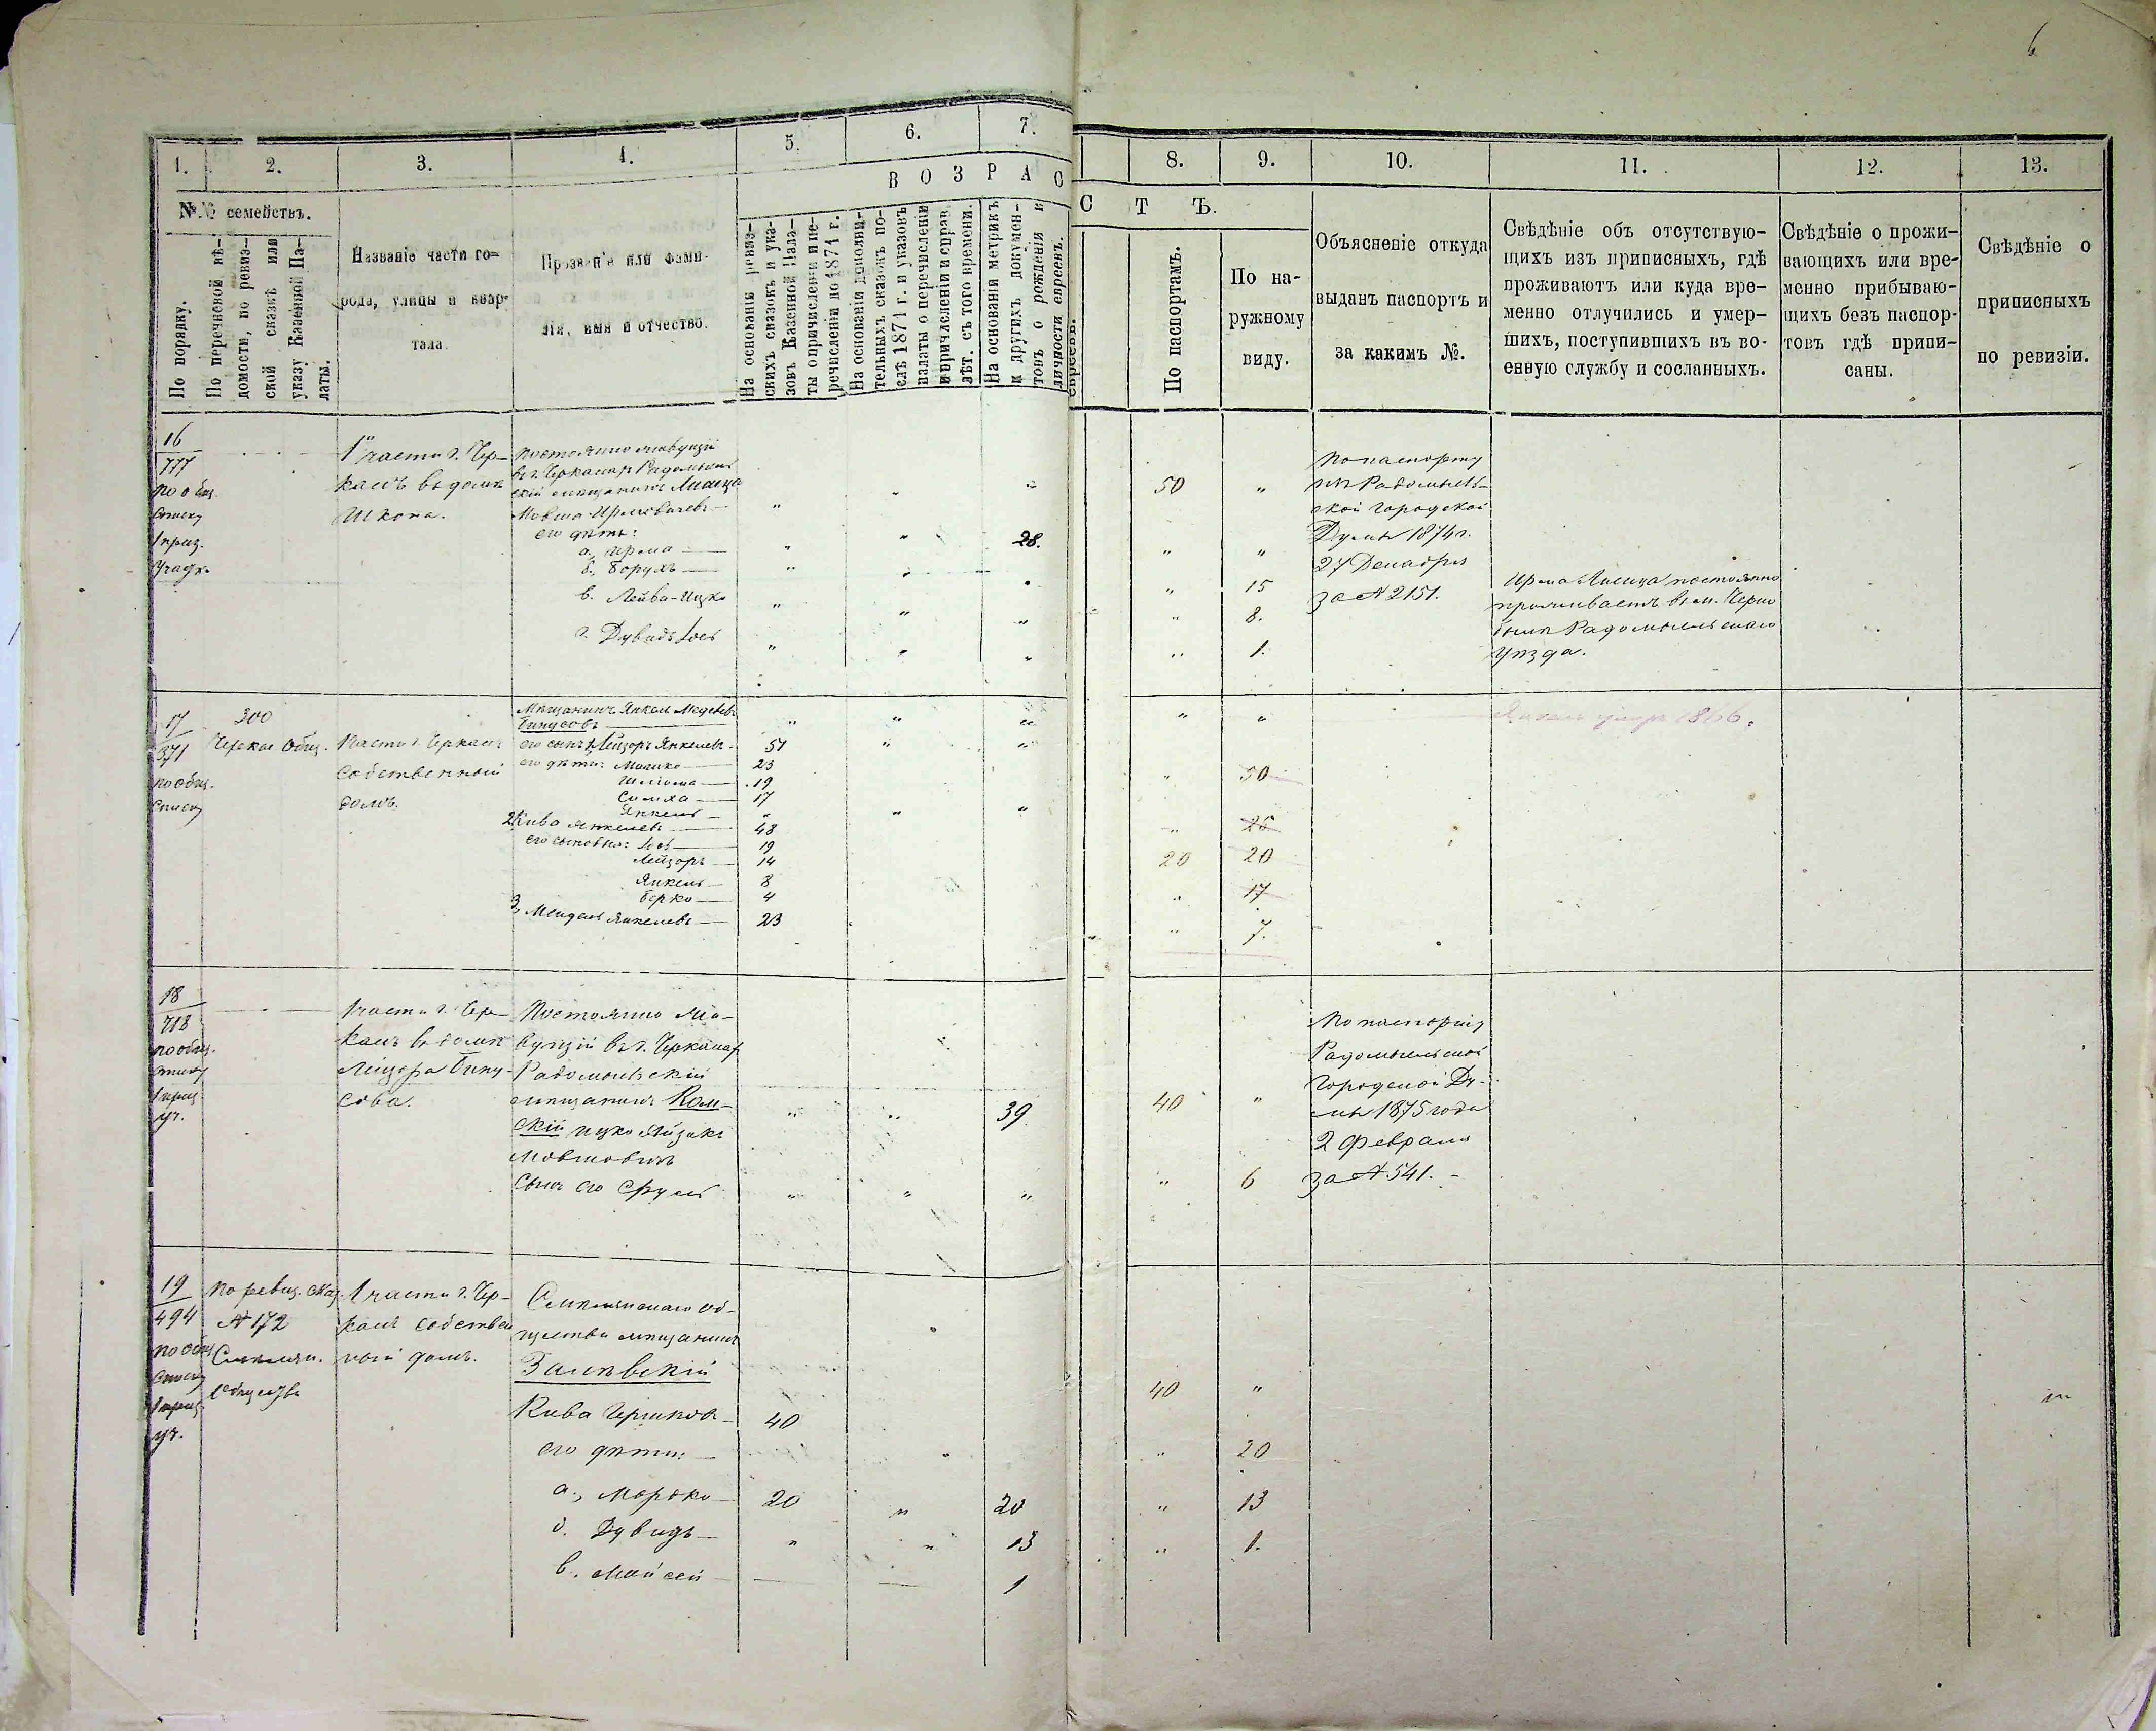 6
1.
2.
3.
4.
5.
6.
7.
8.
9.
10.
11.
12.
13.
ВОЗРАСТЪ.
№№ семействъ.
По порядку.
По перечневой вѣ-
домости, по ревиз-
ской сказкѣ или
указу Казенной Па-
латы.
Названіе части го-
рода, улицы и квар-
тала
Прозваніе или фами-
лія, имя и отчество.
На основаніи ревиз-
скихъ сказокъ и ука-
зовъ Казенной Пала-
ты о причисленіи и пе-
речисленіи до 1871 г.
На основаніи дополни-
тельныхъ сказокъ по-
слѣ 1871 г. и указовъ
палаты о перечисленіи
и причисленіи и справ.
лѣт. съ того времени.
На основаніи метрикъ
и другихъ докумен-
товъ о рожденіи и
личности евреевъ.
По паспортамъ.
По на-
ружному
виду.
Объясненіе откуда
выданъ паспортъ и
за какимъ №.
Свѣдѣніе объ отсутствую-
щихъ изъ приписныхъ, гдѣ
проживаютъ или куда вре-
менно отлучились и умер-
шихъ, поступившихъ въ во-
енную службу и сосланныхъ.
Свѣдѣніе о прожи-
вающихъ или вре-
менно прибываю-
щихъ безъ паспор-
товъ гдѣ припи-
саны.
Свѣдѣніе о
приписныхъ
по ревизіи.
16
777
по общ.
списку
1 приз.
участк.
1 части г. Чер-
касъ въ домѣ
Шкопа.
Постоянно живущій
въ г. Черкасах Радомысль
скій мѣщанинъ Лисица
Мовша Ирмовичевъ
50
его дѣти:
а., Ирма
28.
б., Борухъ
15
в. Лейба-Ицко
8.
г. Дувидъ Іось
1.
По паспорту
изъ Радомысль-
ской Городской
Думы 1874 г.
27 Декабря
за № 2151.
Ирма Лисица постоянно
проживаетъ въ м. Черно
былѣ Радомысльскаго
уѣзда.
17
371
по общ.
списку
300
Черкас. Общ.
1 части г. Черкасъ
собственный
домъ.
Мѣщанинъ Янкель
Бинусовъ
его сынъ Лейзоръ Янкелев. 51
его дѣти: Мошко 23
Шліома 19
Симха 17
Янкель
2, Кива Янкелевъ 48
его сыновья: Іось 19
Лейзоръ 14
Янкель 8
Берко 4
3, Мендель Янкелевъ 23
50
25
20 20
17
7.
Янкель умеръ 1866.
18
718
по общ.
списку
1 приз.
уч.
1 части г. Чер-
касъ въ домѣ
Лейзора Бину-
сова.
Постоянно жи-
вущій въ г. Черкасах
Радомысльскій
мѣщанинъ Ком-
скій Ицко Айзикъ
Мовшовичъ
39
40
Сынъ его Сруль
6
По паспорту
Радомысльской
Городской Ду-
мы 1875 года
2 Февраля
за № 541.-
19
494
по общ.
списку
1 приз.
уч.
По ревиз. сказ.
№ 172
Смѣлян.
Общества
1 части г. Чер-
касъ собствен
ный домъ.
Смѣлянскаго об-
щества мѣщанинъ
Залѣвскій
Кива Гершков.
40
40
его дѣти:
а., Мордко
20
20
20
б. Дувидъ
13
13
в. Мойсей
1
1.